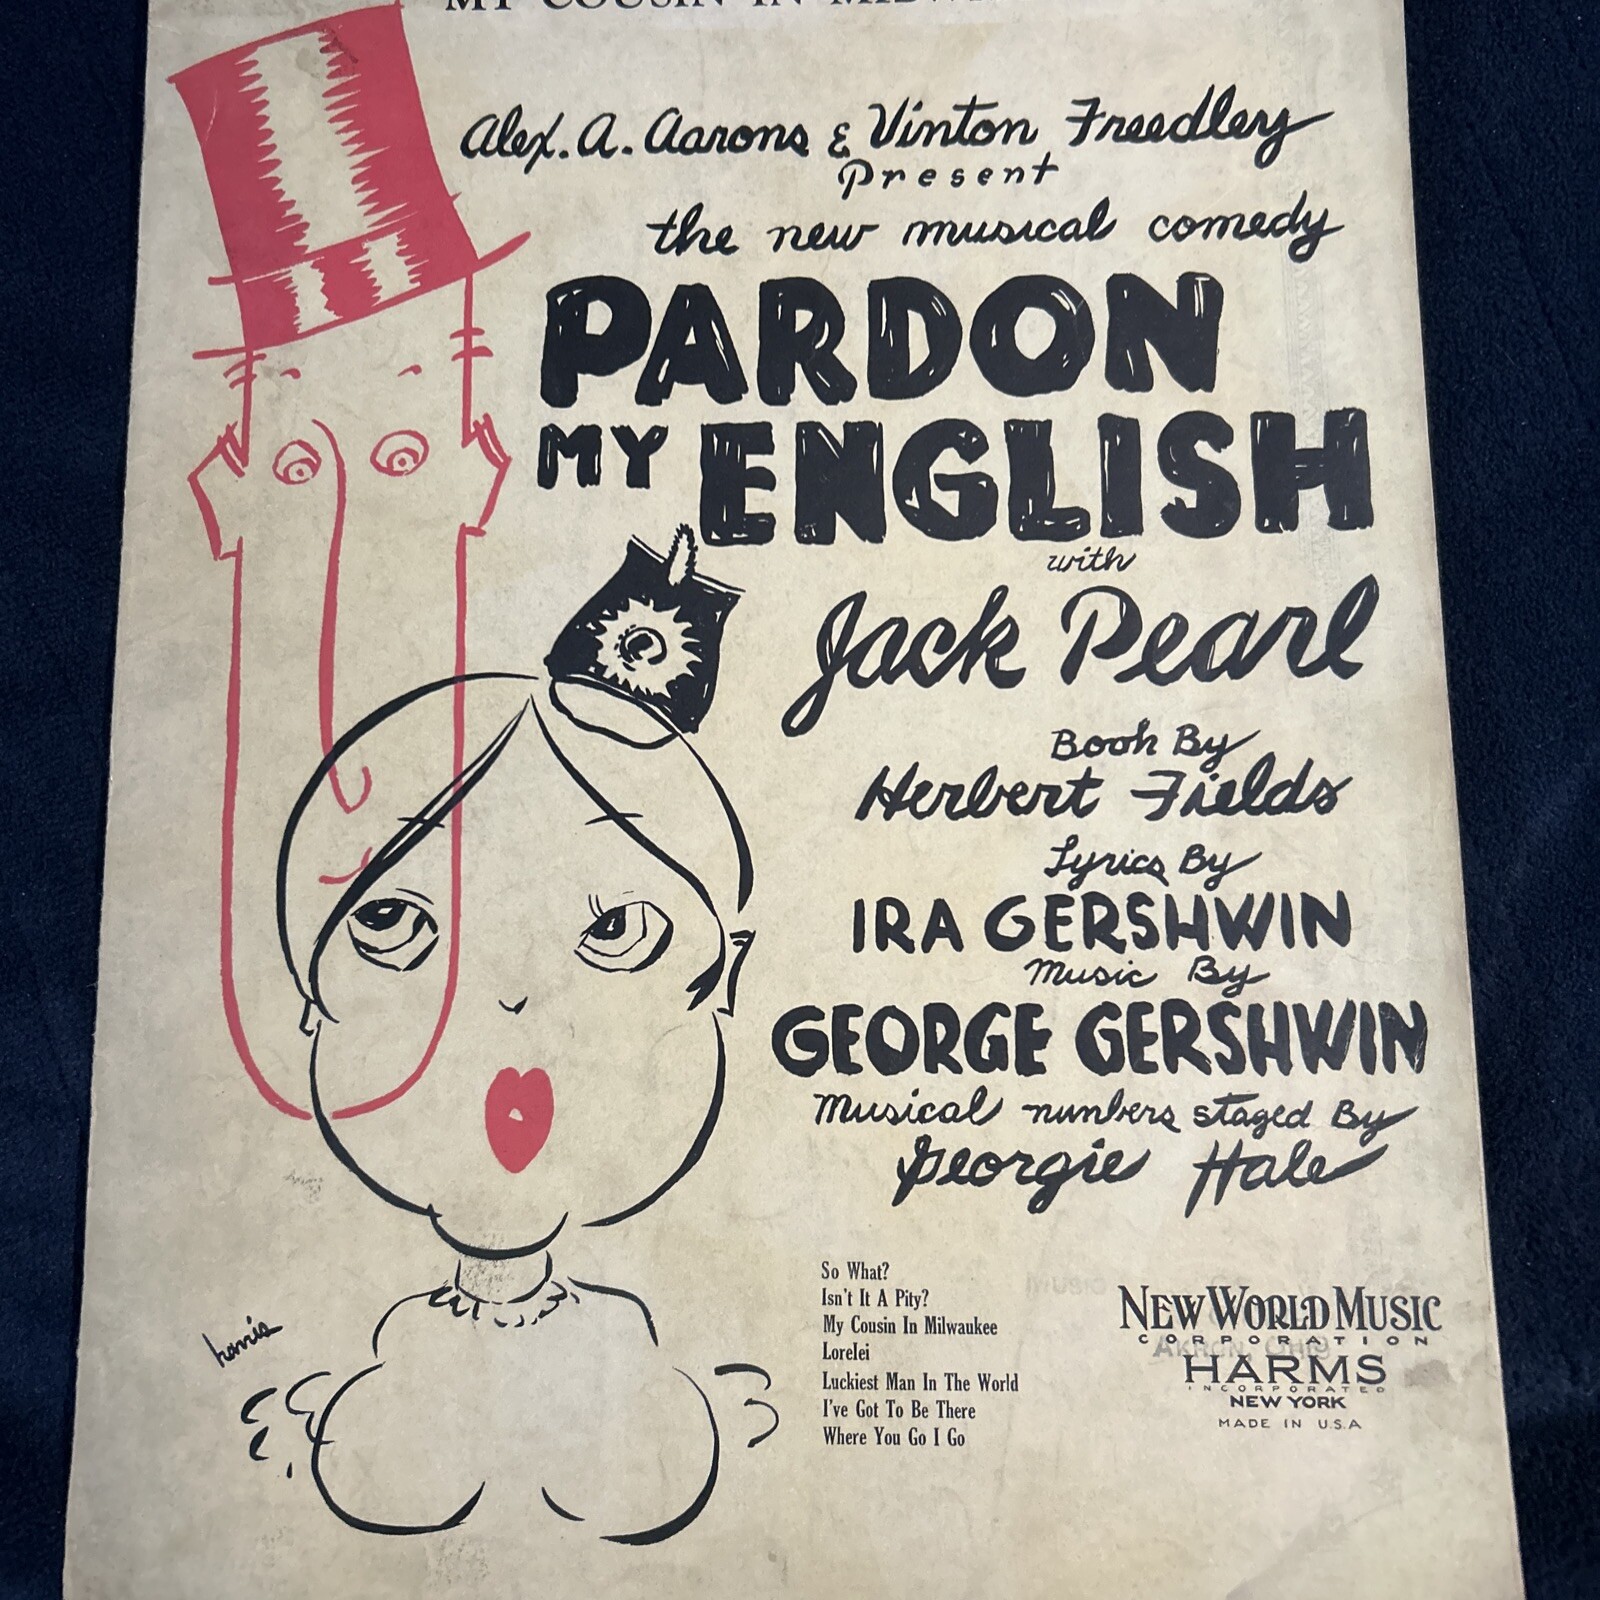 MY COUSIN IN
Alex. A. Aarons & Vinton Freedley
Present
the new musical comedy
PARDON
MY ENGLISH
with
Jack Pearl
Book By
Herbert Fields
Lyrics By
IRA GERSHWIN
Music By
GEORGE GERSHWIN
Musical numbers staged By
Georgie Hale
harris
So What?
Isn't It A Pity?
My Cousin In Milwaukee
Lorelei
Luckiest Man In The World
I've Got To Be There
Where You Go I Go
NEW WORLD MUSIC
CORPORATION
AKRON, OHIO
HARMS
INCORPORATED
NEW YORK
MADE IN U.S.A